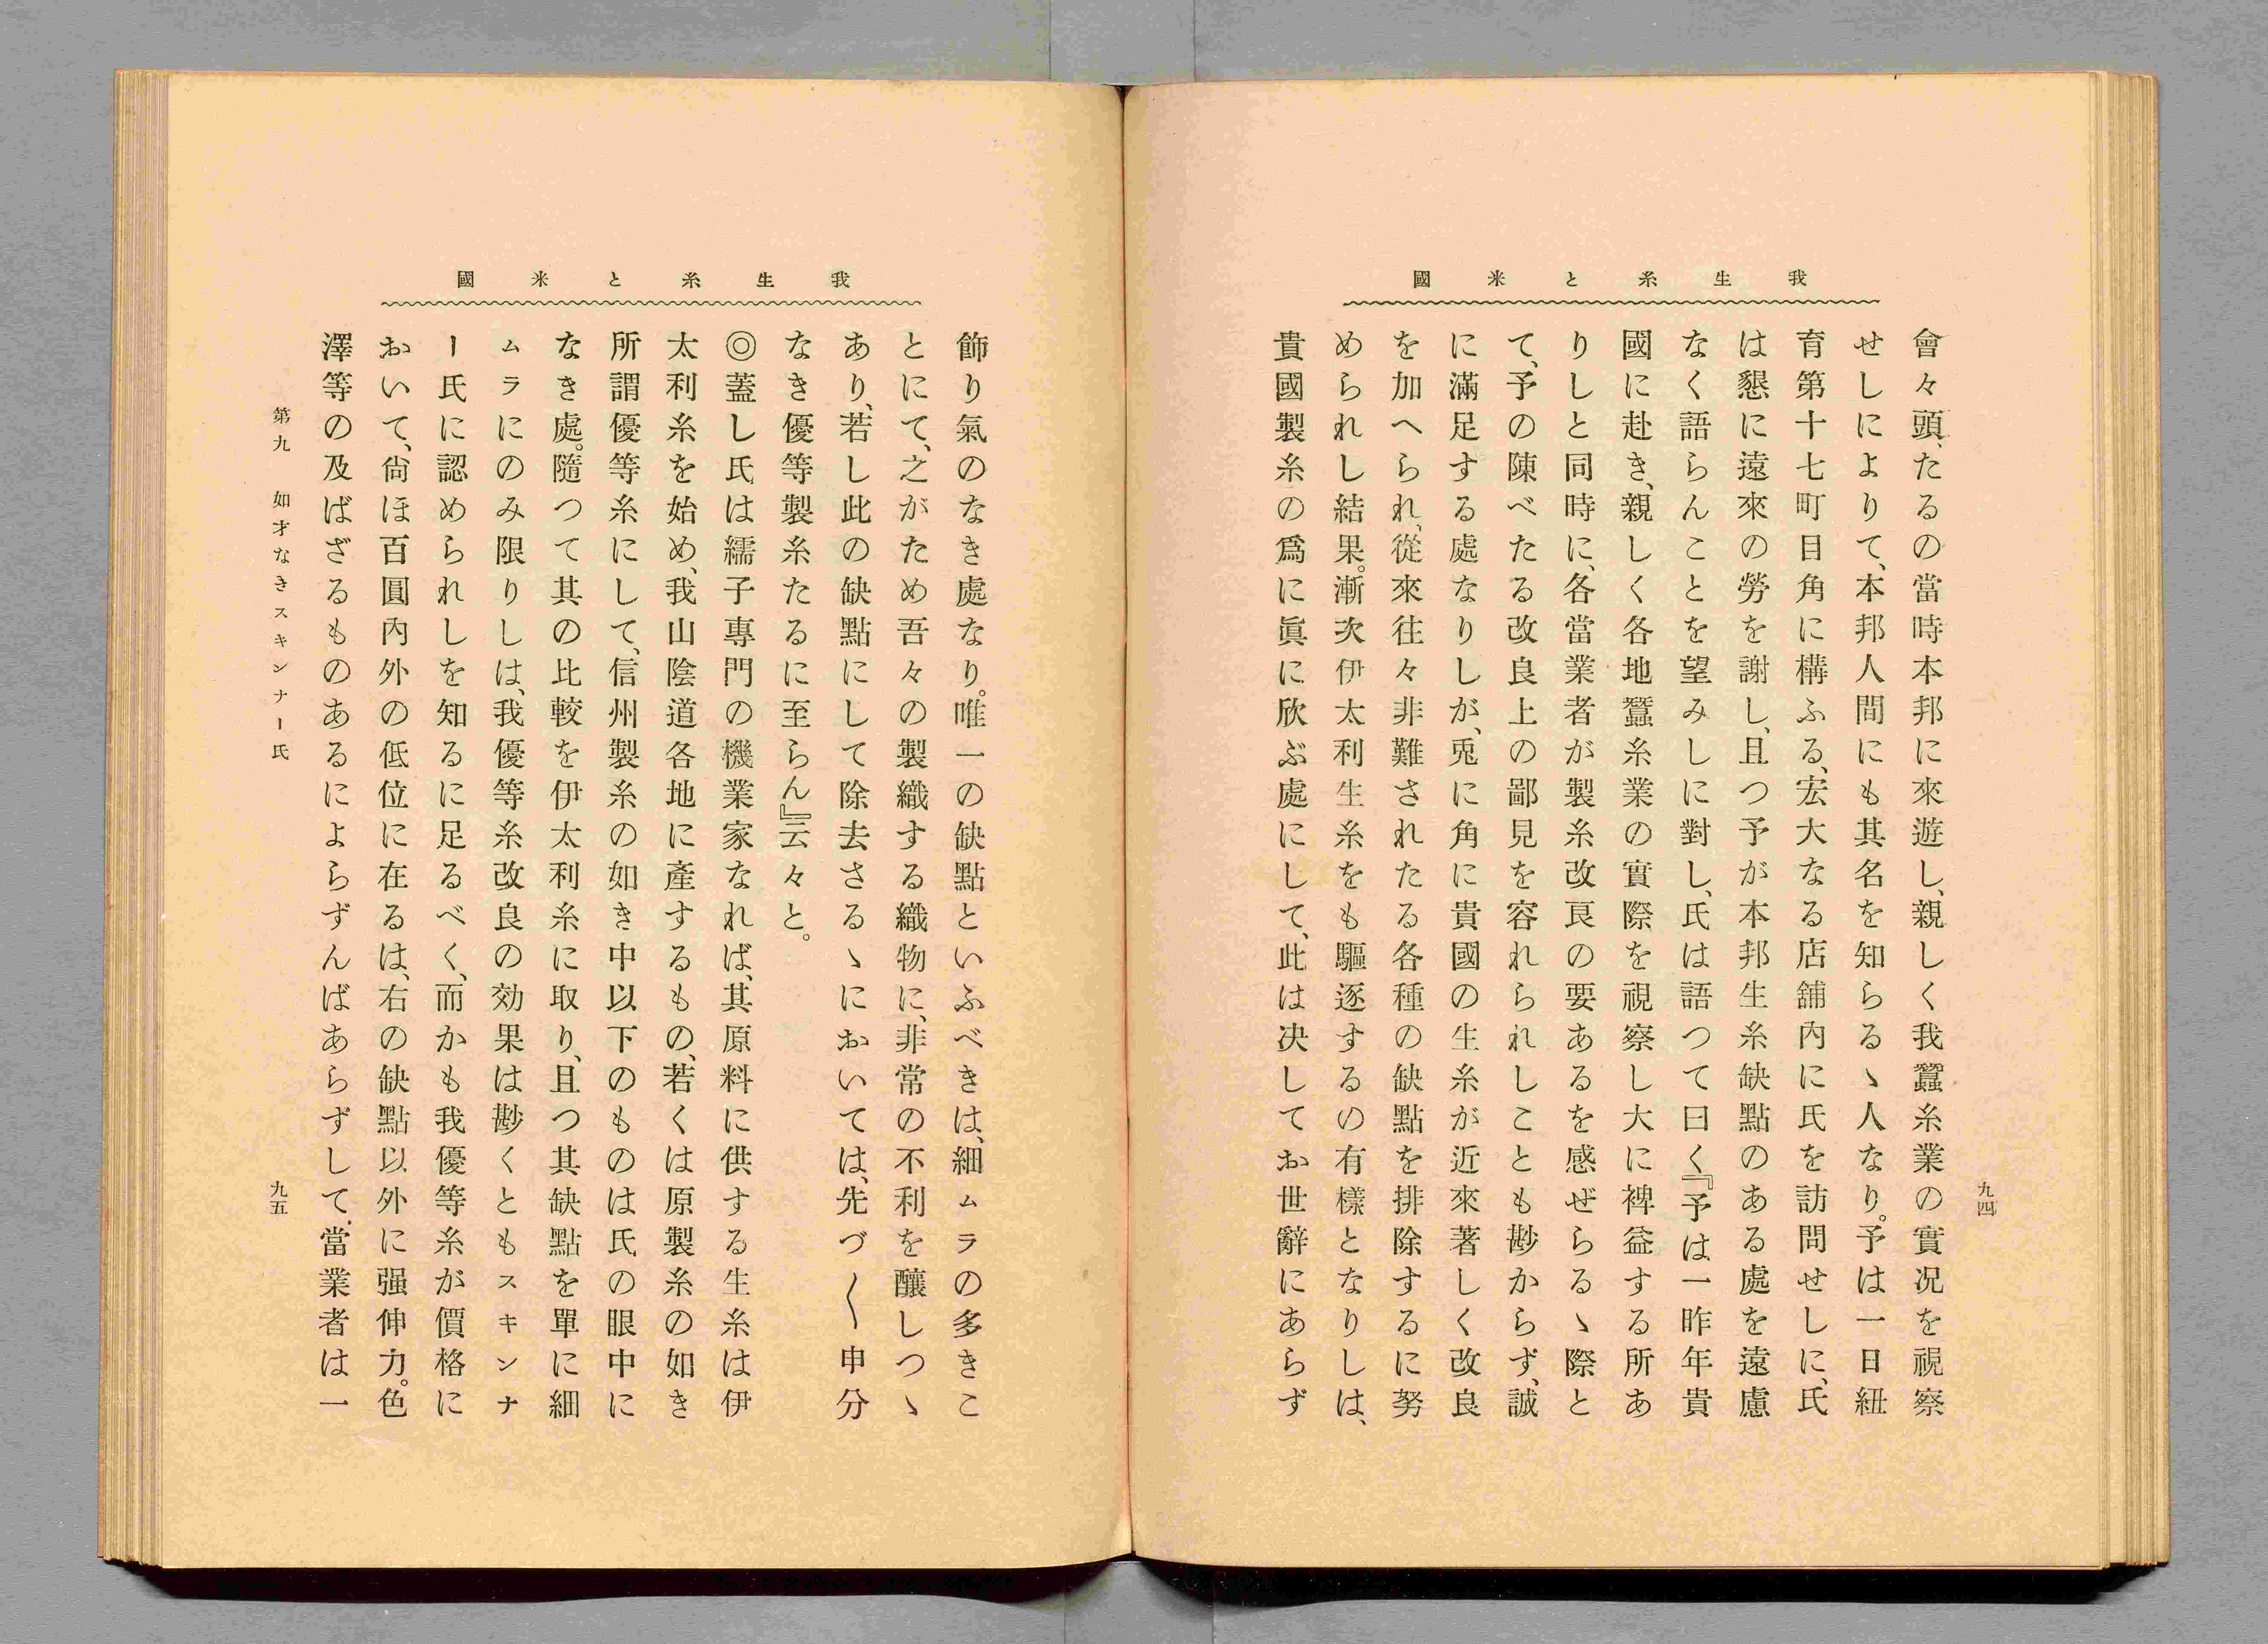 我生糸と米國
會々頭、たるの當時本邦に來遊し、親しく我蠶糸業の實况を視察
せしによりて、本邦人間にも其名を知らるゝ人なり。予は一日紐
育第十七町目角に構ふる、宏大なる店舖内に氏を訪問せしに、氏
は懇に遠來の勞を謝し、且つ予が本邦生糸缺點のある處を遠慮
なく語らんことを望みしに對し、氏は語つて曰く『予は一昨年貴
國に赴き、親しく各地蠶糸業の實際を視察し大に裨益する所あ
りしと同時に、各當業者が製糸改良の要あるを感ぜらるゝ際と
て、予の陳べたる改良上の鄙見を容れられしことも尠からず、誠
に滿足する處なりしが、兎に角に貴國の生糸が近來著しく改良
を加へられ、從來往々非難されたる各種の缺點を排除するに努
められし結果。漸次伊太利生糸をも驅逐するの有樣となりしは、
貴國製糸の爲に眞に欣ぶ處にして、此は决してお世辭にあらず
九四
我生糸と米國
飾り氣のなき處なり。唯一の缺點といふべきは、細ムラの多きこ
とにて、之がため吾々の製織する織物に、非常の不利を釀しつゝ
あり、若し此の缺點にして除去さるゝにおいては、先づ〱申分
なき優等製糸たるに至らん』云々と。
◎蓋し氏は繻子專門の機業家なれば、其原料に供する生糸は伊
太利糸を始め、我山陰道各地に產するもの、若くは原製糸の如き
所謂優等糸にして、信州製糸の如き中以下のものは氏の眼中に
なき處。隨つて其の比較を伊太利糸に取り、且つ其缺點を單に細
ムラにのみ限りしは、我優等糸改良の効果は尠くともスキンナ
ー氏に認められしを知るに足るべく、而かも我優等糸が價格に
おいて、尙ほ百圓內外の低位に在るは、右の缺點以外に强伸力。色
澤等の及ばざるものあるによらずんばあらずして、當業者は一
第九　如才なきスキンナー氏
九五